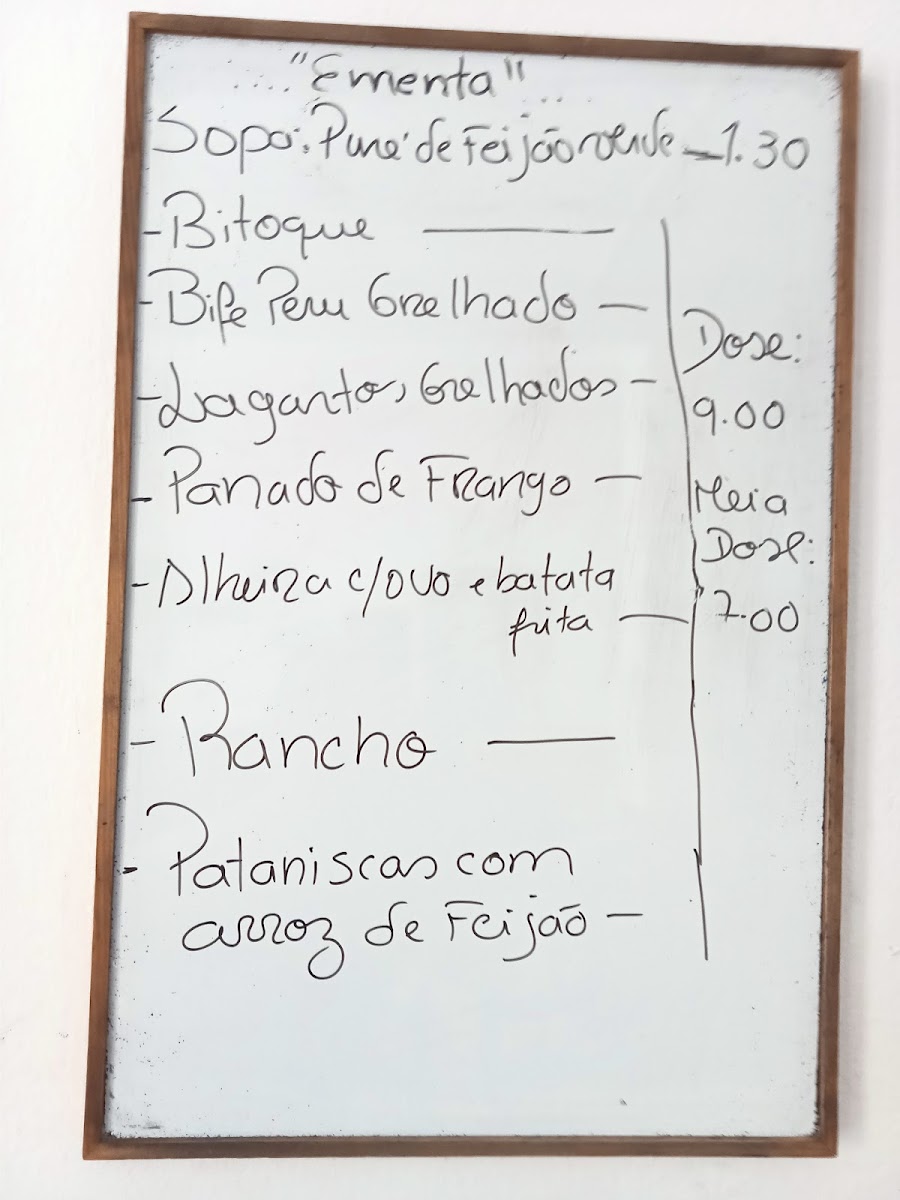 ...."Ementa"...
Sopa: Puré de Feijão verde - 1.30
- Bitoque —
- Bife Peru Grelhado —
- Lagantos, Grelhados -
- Panado de Frango —
- Alheira c/ovo e batata
frita —
- Rancho —
- Pataniscas com
arroz de Feijão —
Dose:
9.00
Meia
Dose:
7.00